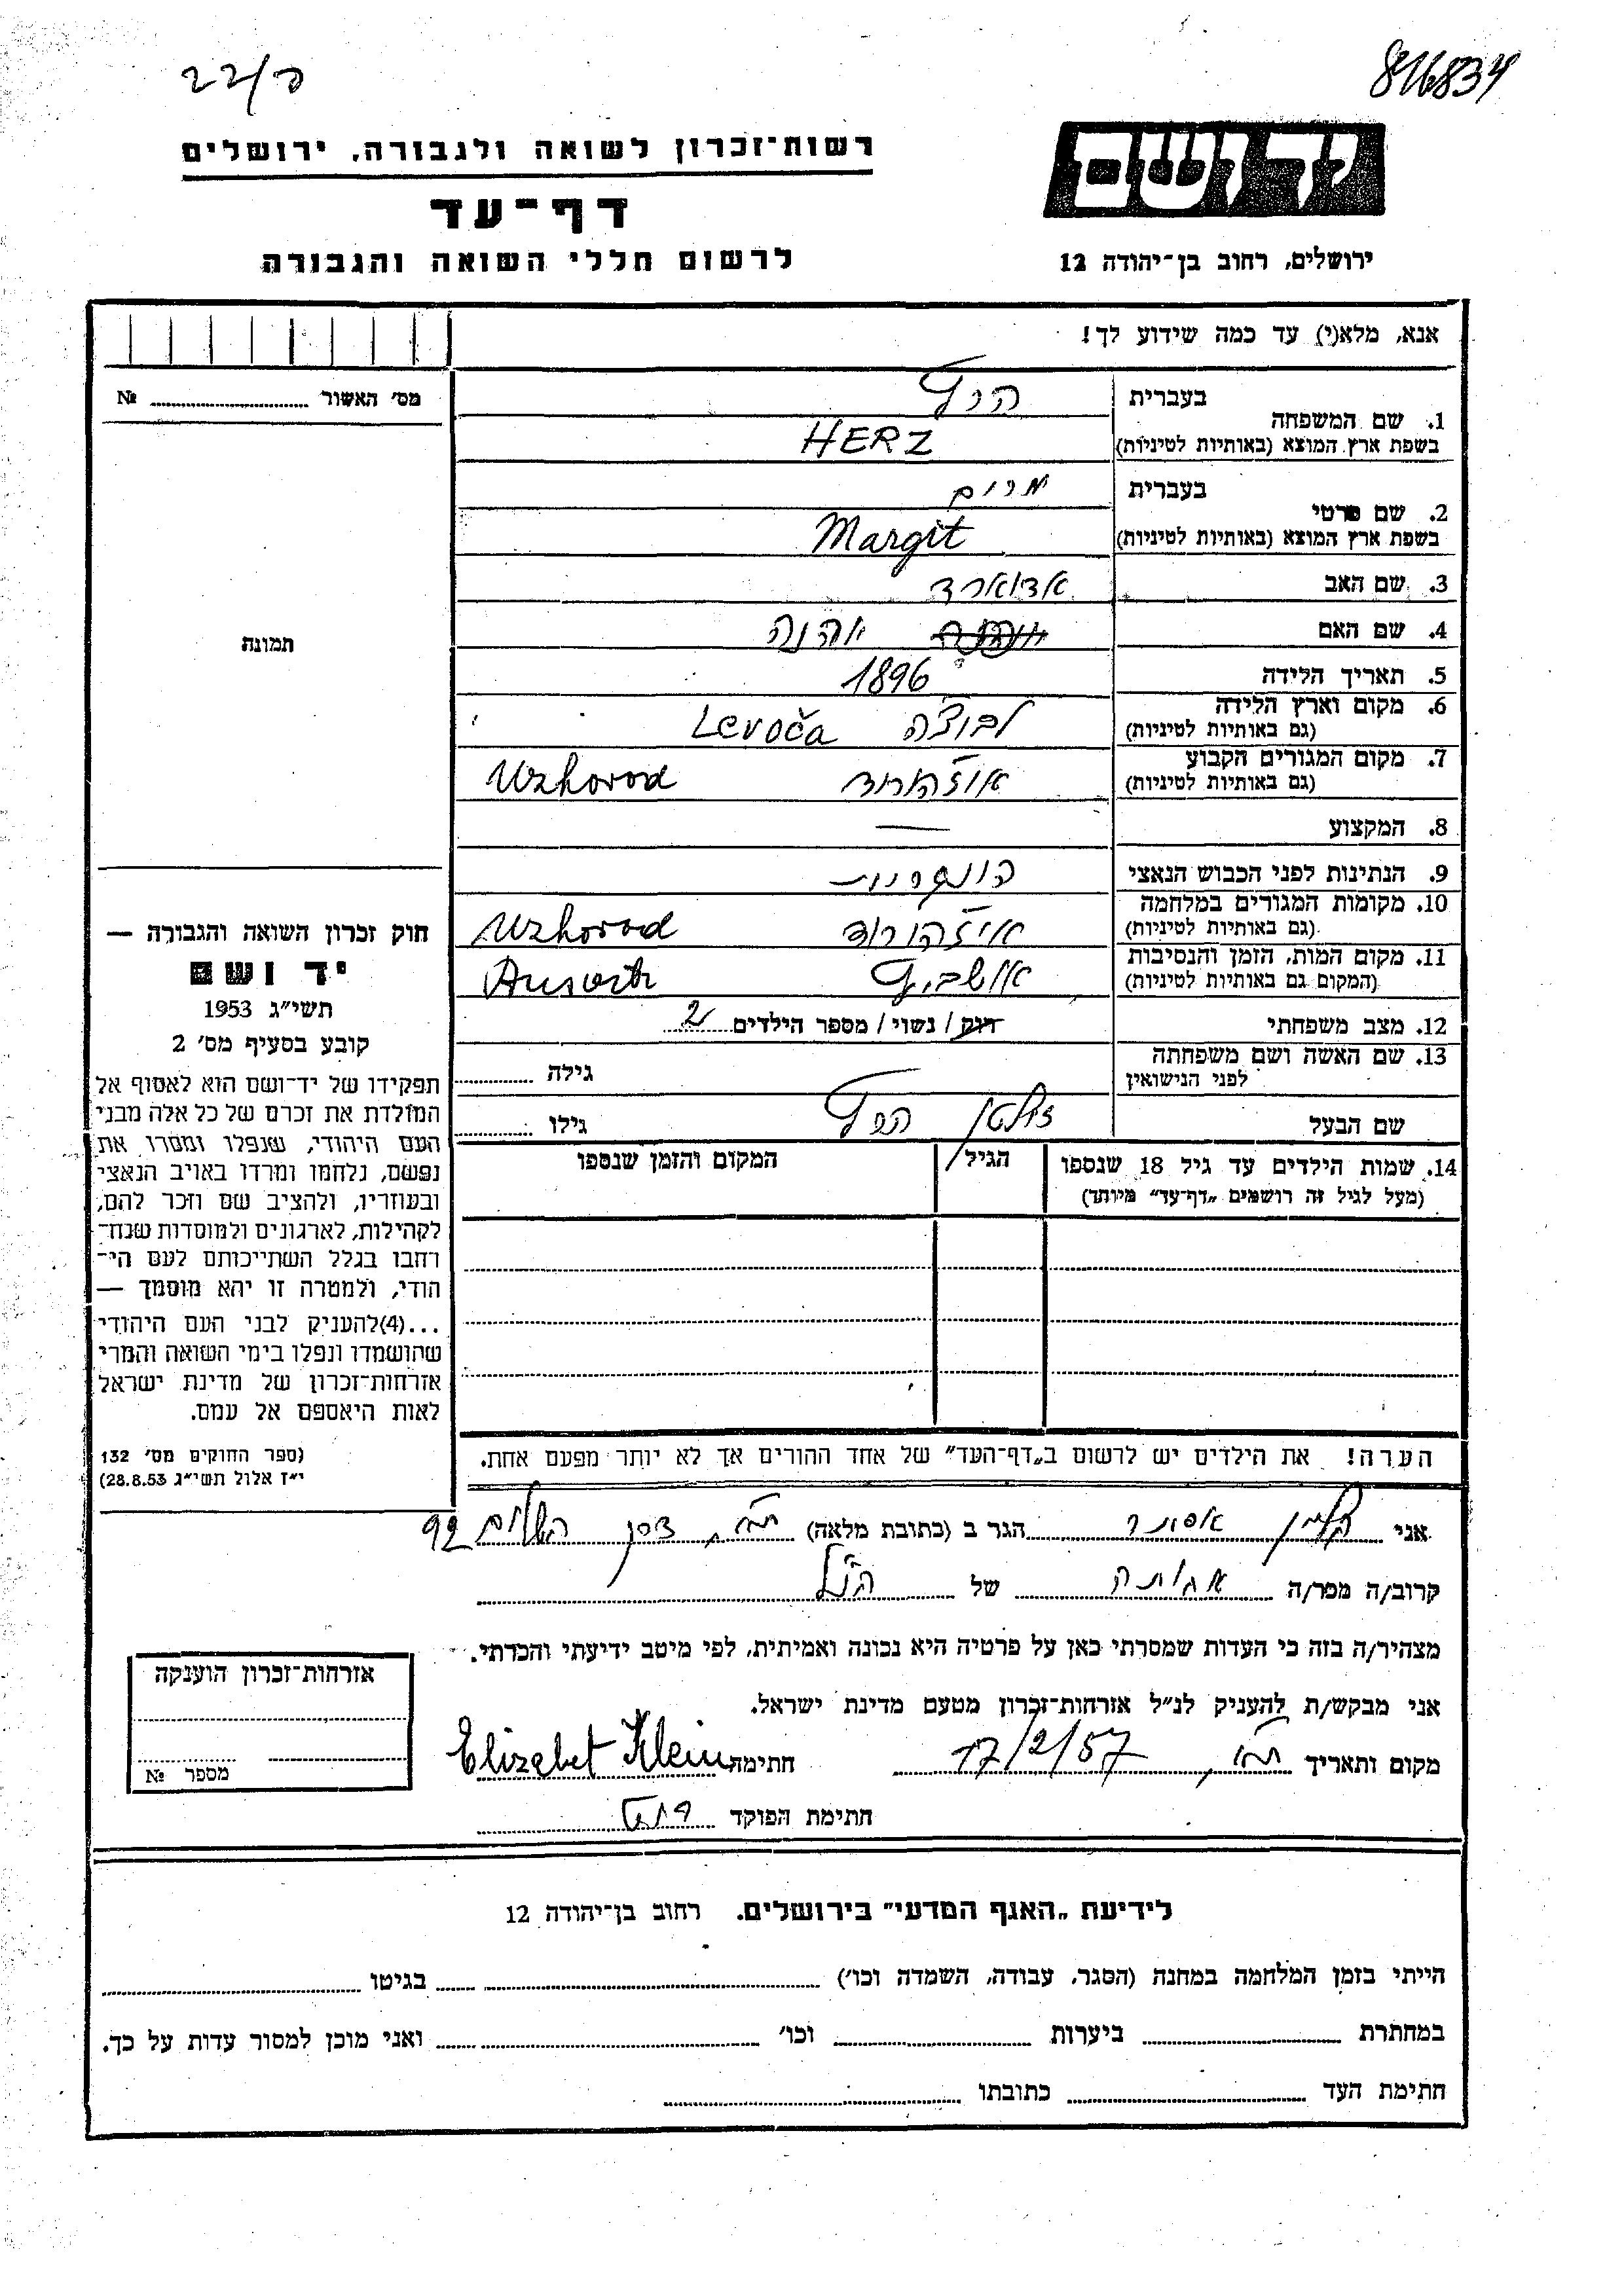 816834
22/ה
יד ושם
רשות־זכרון לשואה ולגבורה, ירושלים
דף־עד
לרשום חללי השואה והגבורה
ירושלים, רחוב בן־יהודה 12
אנא, מלא(י) עד כמה שידוע לך!
מס' האשור № 
1. שם המשפחה
בעברית הרץ
בשפת ארץ המוצא (באותיות לטיניות) HERZ
2. שם פרטי
בעברית מרים
בשפת ארץ המוצא (באותיות לטיניות) Margit
3. שם האב אדוארד
4. שם האם
5. תאריך הלידה 1896
6. מקום וארץ הלידה (גם באותיות לטיניות) לבוצ'ה Levoča
7. מקום המגורים הקבוע (גם באותיות לטיניות) אוז'הורוד Uzhorod
8. המקצוע —
9. הנתינות לפני הכבוש הנאצי הונגרית
10. מקומות המגורים במלחמה (גם באותיות לטיניות) אוז'הורוד Uzhorod
11. מקום המות, הזמן והנסיבות (המקום גם באותיות לטיניות) אושביץ
12. מצב משפחתי רווק / נשוי / מספר הילדים 2
13. שם האשה ושם משפחתה לפני הנישואין גילה
שם הבעל זולטן הרץ גילו
14. שמות הילדים עד גיל 18 שנספו
(מעל לגיל זה רושמים "דף־עד" מיוחד)
הגיל
המקום והזמן שנספו
הערה! את הילדים יש לרשום ב"דף־העד" של אחד ההורים אך לא יותר מפעם אחת.
תמונה
חוק זכרון השואה והגבורה —
יד ושם
תשי"ג 1953
קובע בסעיף מס' 2
תפקידו של יד־ושם הוא לאסוף אל
המולדת את זכרם של כל אלה מבני
העם היהודי, שנפלו ומסרו את
נפשם, נלחמו ומרדו באויב הנאצי
ובעוזריו, ולהציב שם וזכר להם,
לקהילות, לארגונים ולמוסדות שנח־
רבו בגלל השתייכותם לעם הי־
הודי, ולמטרה זו יהא מוסמך —
...(4)להעניק לבני העם היהודי
שהושמדו ונפלו בימי השואה והמרי
אזרחות־זכרון של מדינת ישראל
לאות היאספם אל עמם.
(ספר החוקים מס' 132
י"ז אלול תשי"ג 28.8.53)
אני קליין הגר ב (כתובת מלאה) השלום 92
קרוב/ה מכר/ה אחותה של הנ"ל
מצהיר/ה בזה כי העדות שמסרתי כאן על פרטיה היא נכונה ואמיתית, לפי מיטב ידיעתי והכרתי.
אני מבקש/ת להעניק לנ"ל אזרחות־זכרון מטעם מדינת ישראל.
מקום ותאריך 17/2/57 חתימה Elizabet Klein
חתימת הפוקד
אזרחות־זכרון הוענקה
מספר №
לידיעת "האגף המדעי" בירושלים. רחוב בן־יהודה 12
הייתי בזמן המלחמה במחנה (הסגר, עבודה, השמדה וכו') בגיטו
במחתרת ביערות וכו' ואני מוכן למסור עדות על כך.
חתימת העד כתובתו